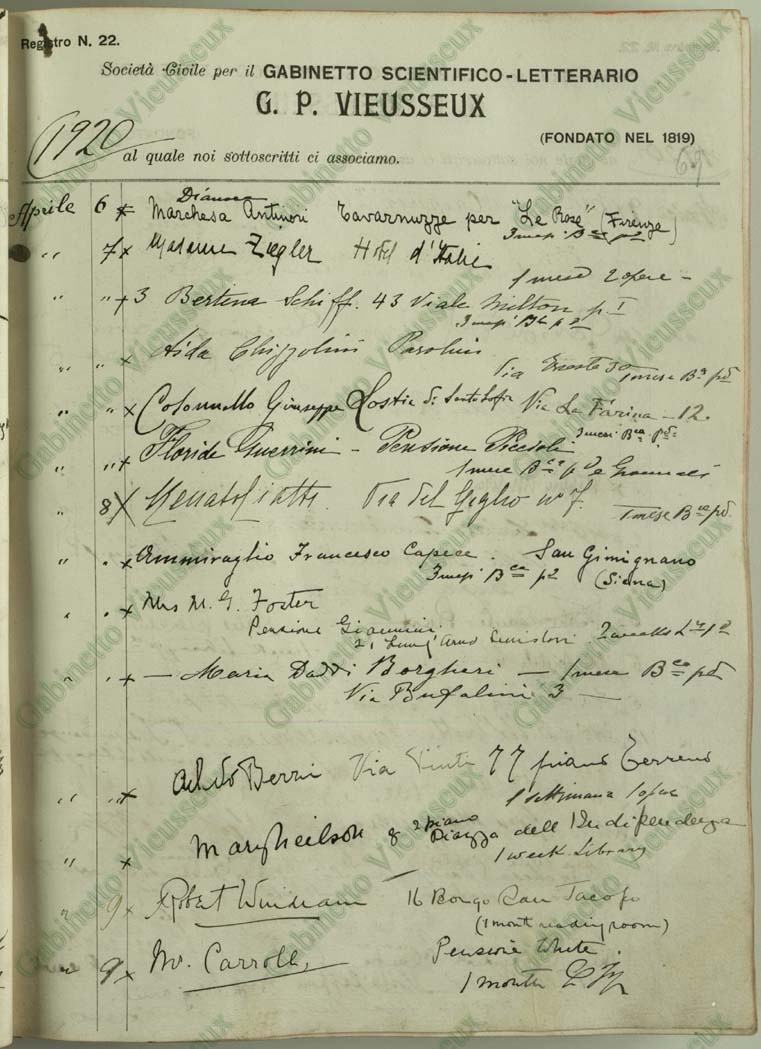 Registro N. 22.
Società Civile per il GABINETTO SCIENTIFICO-LETTERARIO
G. P. VIEUSSEUX
(FONDATO NEL 1819)
1920
al quale noi sottoscritti ci associamo.
Aprile 6 Marchesa Antinori Tavarnuzze per "Le Rose" (Firenze)
3 mesi Bca p2
" 7 x Madame Ziegler Hotel d'Italie
1 mese 2 opere -
" " x 3 Bertena Schiff. 43 Viale Milton p. I
3 mesi p 2
" " x Aida Chizzolini Parolini
Via 1 mese Ba pd
" " x Colonnello Giuseppe Lostia di Santa Sofia Via La Farina - 12.
3 mesi Bca pd
" " x Floride Guerrini - Pensione Piccioli
1 mese
" 8 x Via del Giglio no 7.
1 mese Bca pd
" " x Ammiraglio Francesco Capece. San Gimignano
3 mesi Bca p2 (Siena)
" " x Mrs M. G. Foster
Pensione Giannini
2, Lung'Arno Serristori
" " x - Maria Daddi Borgheri - 1 mese Bca pd
Via Bufalini 3 -
" " x Via 77 piano Terreno
1 settimana
" x 8 2 piano Piazza dell'Indipendenza
1 week Library
" 9 x Robert Windram 16 Borgo San Jacopo
(1 month reading room)
9 x Mr. Carroll, Pensione White.
1 month
Gabinetto Vieusseux